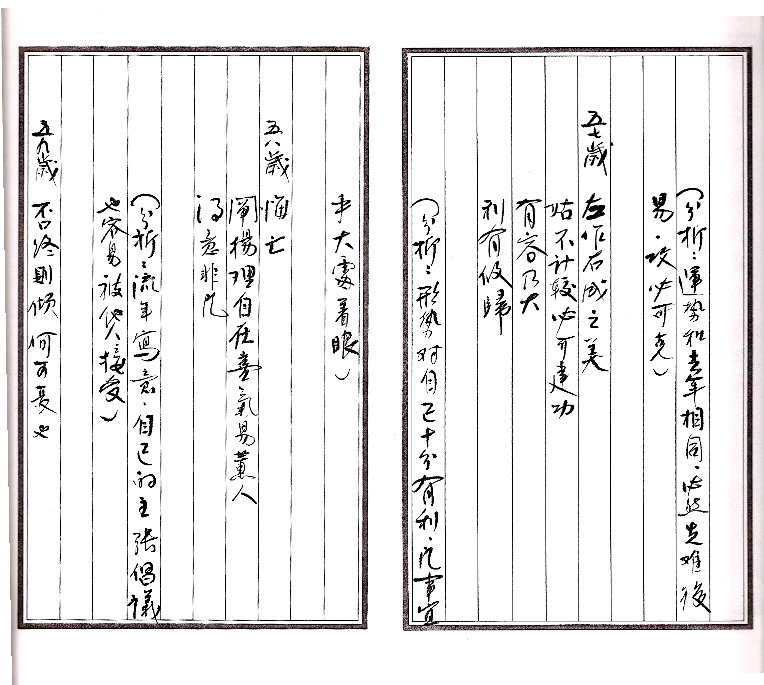 (分析：運勢和去年相同．必然先难後
易．攻必可克)
五七歲 左作右成之美
姑不计較必可建功
有容乃大
利有攸歸
(分析：形势对自己十分有利．凡事宜
大處着眼)
五八歲 悔亡
闡揚理自在喜氣易薰人
得意非凡
(分析：流年寫意．自己的主张倡議
也容易被他人接受)
五九歲 否终則倾何可憂也